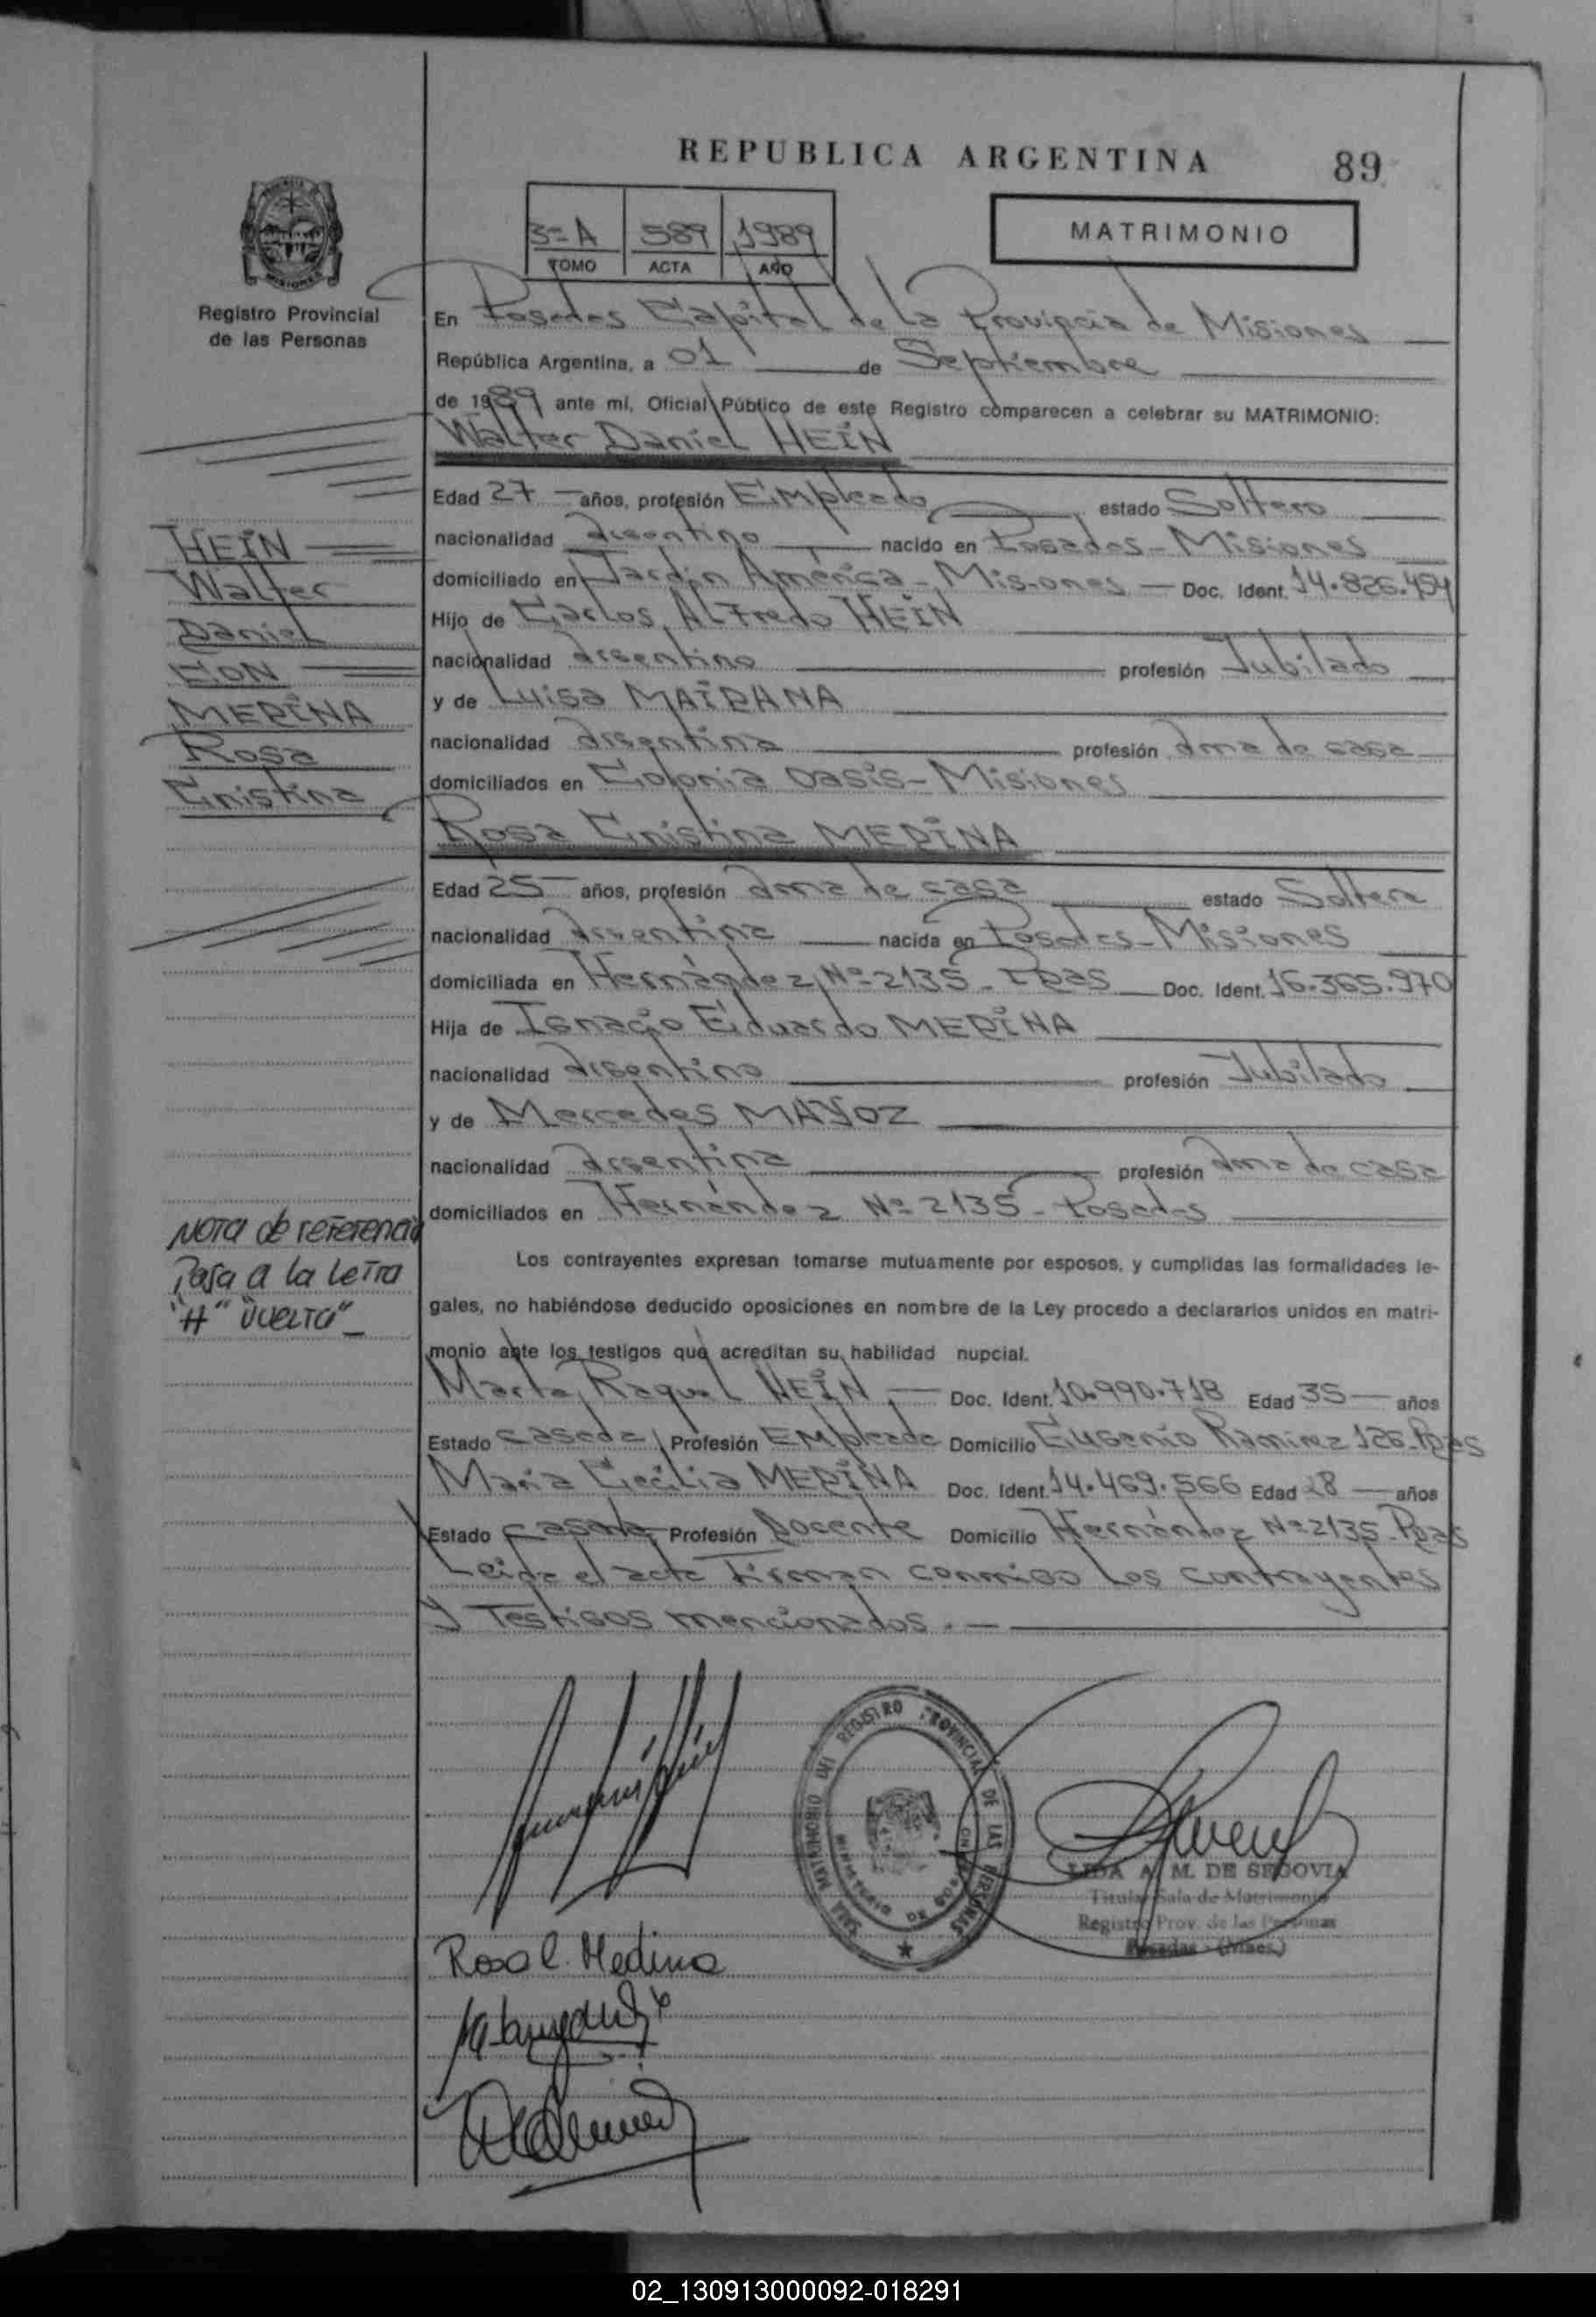 REPUBLICA ARGENTINA 89
3=A 589 1989
TOMO ACTA AÑO
MATRIMONIO
Registro Provincial
de las Personas
En Posadas Capital de la Provincia de Misiones
República Argentina, a 01 de Septiembre
de 1989 ante mí, Oficial Público de este Registro comparecen a celebrar su MATRIMONIO:
Walter Daniel HEIN
Edad 27 años, profesión Empleado estado Soltero
nacionalidad Argentino nacido en Posadas - Misiones
domiciliado en Jardín América - Misiones - Doc. Ident. 14.826.454
Hijo de Carlos Alfredo HEIN
nacionalidad Argentino profesión Jubilado
y de Luisa MAIDANA
nacionalidad Argentina profesión Ama de casa
domiciliados en Colonia Oasis - Misiones
Rosa Cristina MEDINA
Edad 25 años, profesión Ama de casa estado Soltera
nacionalidad Argentina nacida en Posadas - Misiones
domiciliada en Hernández Nº 2135 - Pdas Doc. Ident. 16.365.970
Hija de Ignacio Eduardo MEDINA
nacionalidad Argentino profesión Jubilado
y de Mercedes MAYOZ
nacionalidad Argentina profesión Ama de casa
domiciliados en Hernández Nº 2135 - Posadas
Los contrayentes expresan tomarse mutuamente por esposos, y cumplidas las formalidades le-
gales, no habiéndose deducido oposiciones en nombre de la Ley procedo a declararlos unidos en matri-
monio ante los testigos que acreditan su habilidad nupcial.
Marta Raquel HEIN - Doc. Ident. 10.990.718 Edad 35 - años
Estado Casada Profesión Empleada Domicilio Eugenio Ramirez 126 - Pdas
María Cecilia MEDINA Doc. Ident. 14.469.566 Edad 28 - años
Estado Casada Profesión Docente Domicilio Hernández Nº 2135 - Pdas
Leida el acta Firman conmigo los contrayentes
y Testigos mencionados. -
HEIN
Walter
Daniel
CON
MEDINA
Rosa
Cristina
Nota de referencia
Pasa a la letra
"H" vuelta" -
SALA MATRIMONIO DEL REGISTRO PROVINCIAL DE LAS PERSONAS
MINISTERIO DE GOBIERNO
LIDA A. M. DE SEGOVIA
Titular Sala de Matrimonio
Registro Prov. de las Personas
Posadas - (Mnes.)
Rosa C. Medina
02_130913000092-018291